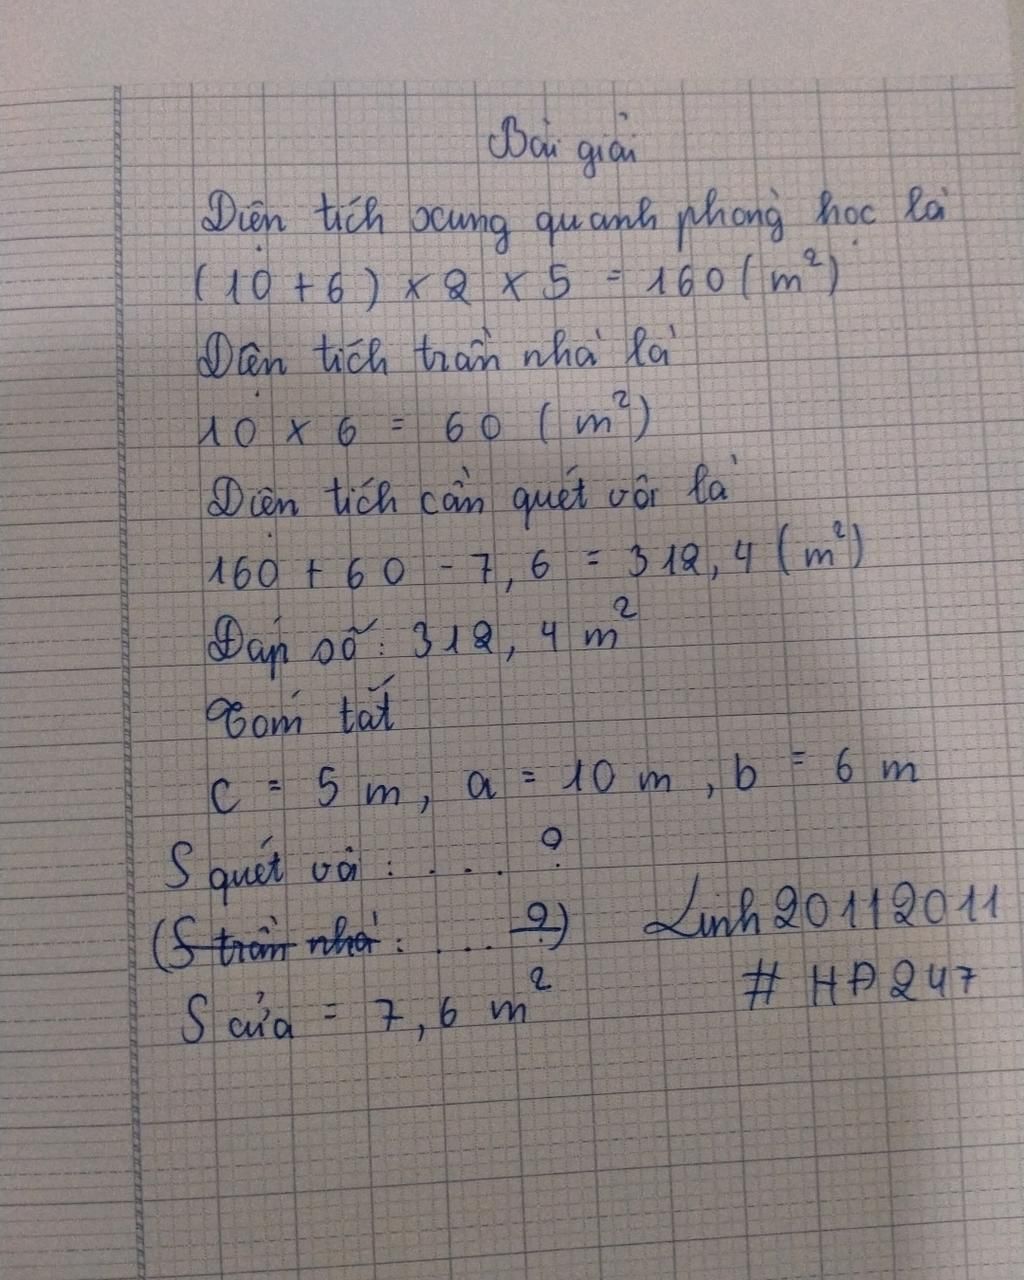 Bài giải
Diện tích xung quanh phòng học là
(10 + 6) × 2 × 5 = 160 (m²)
Diện tích trần nhà là
10 × 6 = 60 (m²)
Diện tích cần quét vôi là
160 + 60 - 7,6 = 312,4 (m²)
Đáp số: 312,4 m²
Tóm tắt
c = 5 m, a = 10 m, b = 6 m
S quét vôi : .... ?
(S trần nhà : .... ?)
Linh20112011
S cửa = 7,6 m²
# HĐ247